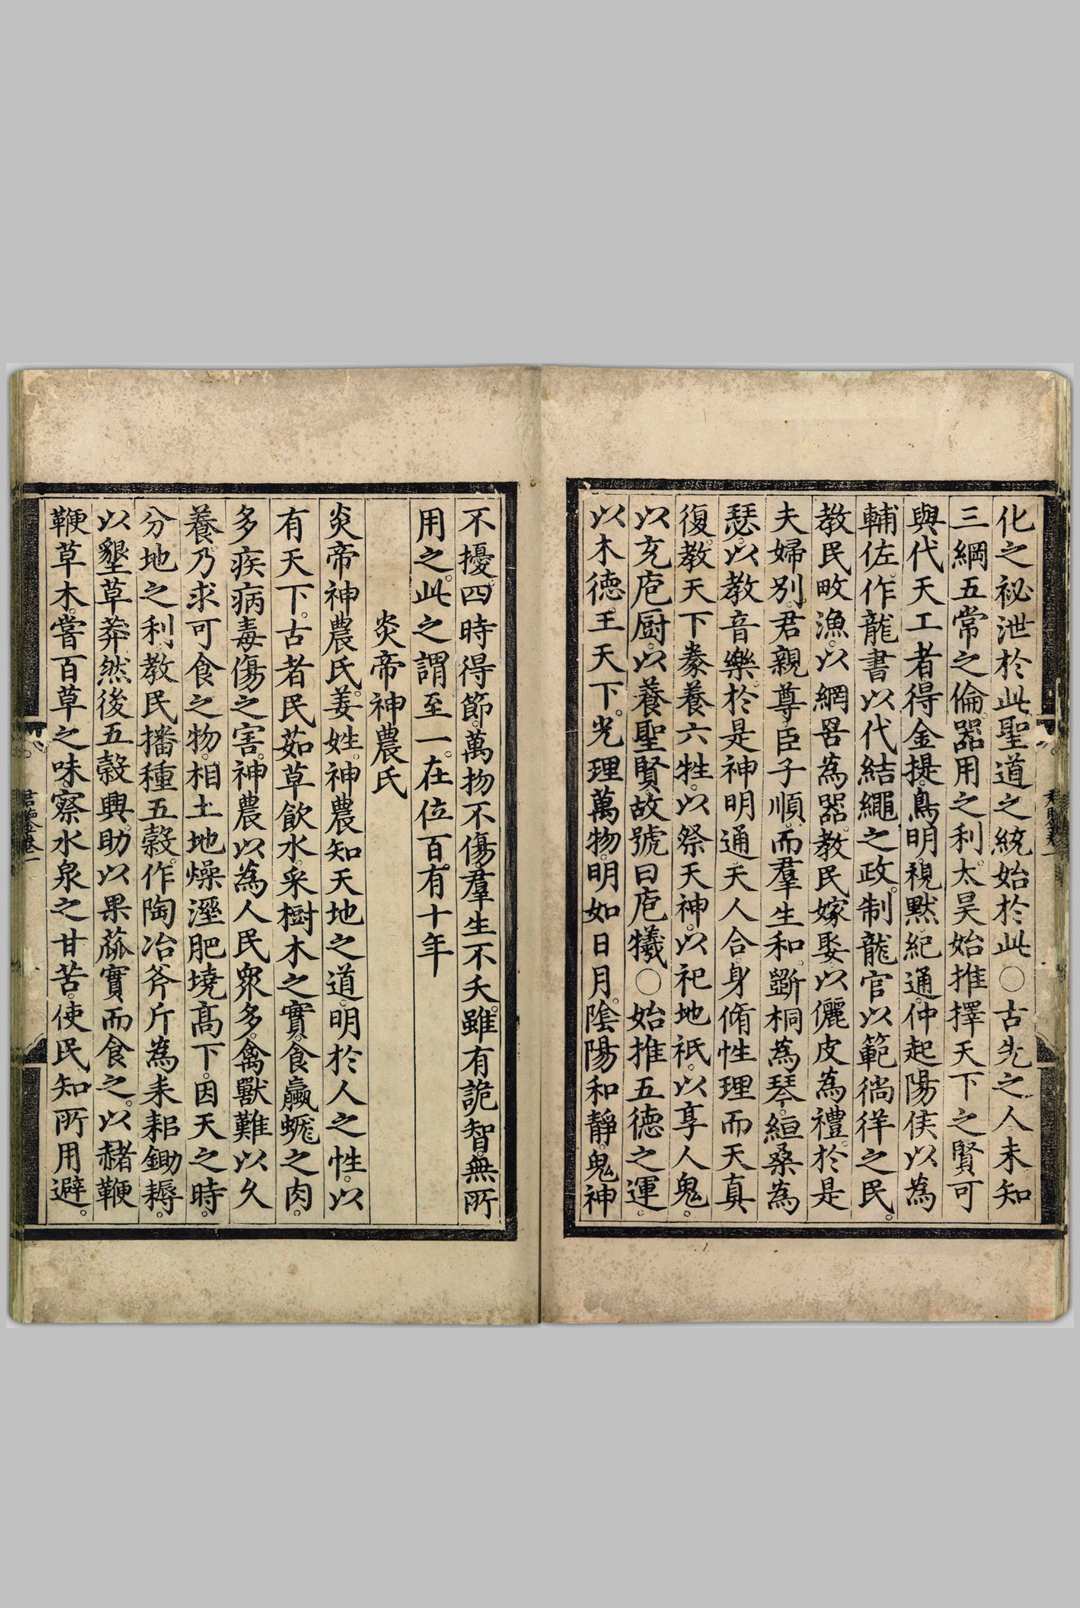 化之祕泄於此聖道之統始於此〇古先之人未知
三綱五常之倫器用之利太昊始推擇天下之賢可
與代天工者得金提鳥明視黙紀通仲起陽侯以為
輔佐作龍書以代結繩之政制龍官以範徜徉之民
教民畋漁以網罟為器教民嫁娶以儷皮為禮於是
夫婦別君親尊臣子順而羣生和斵桐為琴絙桑為
瑟以教音樂於是神明通天人合身脩性理而天真
復教天下豢養六牲以祭天神以祀地祇以享人鬼
以充庖厨以養聖賢故號曰庖犧〇始推五德之運
以木德王天下光理萬物明如日月陰陽和靜鬼神
不擾四時得節萬物不傷羣生不夭雖有詭智無所
用之此之謂至一在位百有十年
炎帝神農氏
炎帝神農氏姜姓神農知天地之道明於人之性以
有天下古者民茹草飲水采樹木之實食蠃蛖之肉
多疾病毒傷之害神農以為人民衆多禽獸難以久
養乃求可食之物相土地燥溼肥墝高下因天之時
分地之利教民播種五穀作陶冶斧斤為耒耜鋤耨
以墾草莽然後五穀興助以果蓏實而食之以赭鞭
鞭草木嘗百草之味察水泉之甘苦使民知所用避